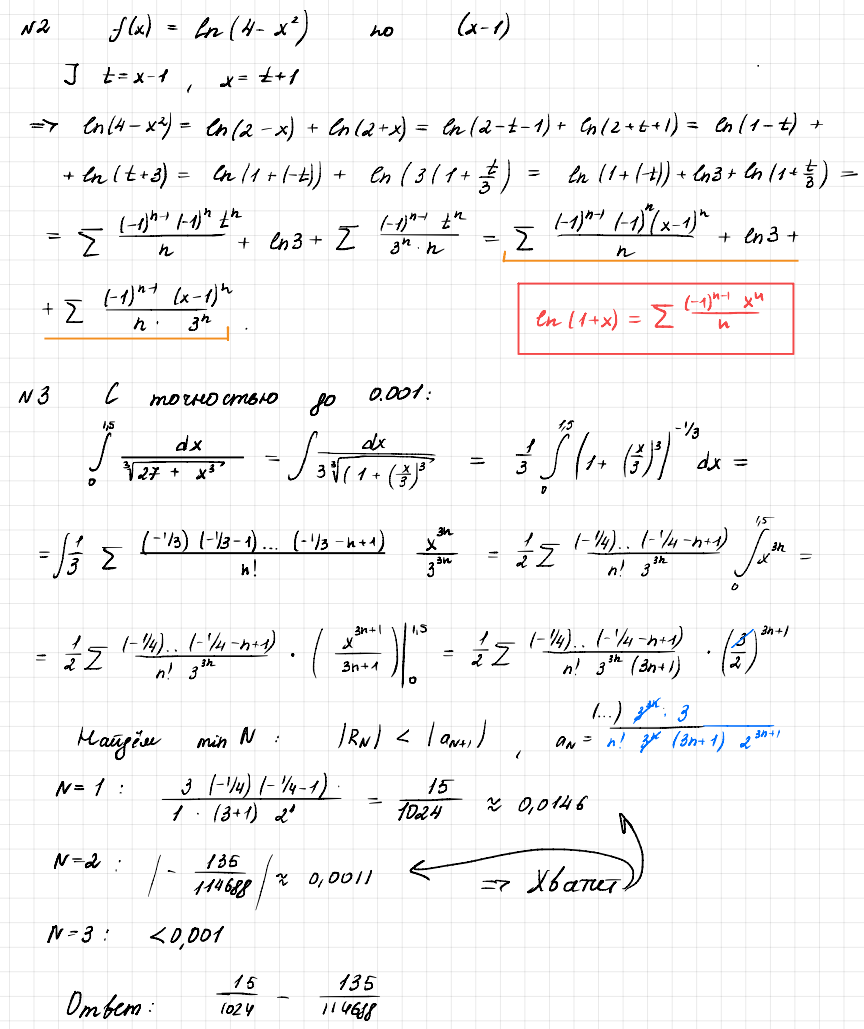 N2 f(x) = ln(4 - x²) по (x-1)
] t = x-1 , x = t+1
=> ln(4-x²) = ln(2-x) + ln(2+x) = ln(2-t-1) + ln(2+t+1) = ln(1-t) +
+ ln(t+3) = ln(1+(-t)) + ln(3(1+t/3) = ln(1+(-t)) + ln3 + ln(1+t/3) =
= Σ (-1)ⁿ⁻¹ (-1)ⁿ tⁿ / n + ln3 + Σ (-1)ⁿ⁻¹ tⁿ / 3ⁿ · n = Σ (-1)ⁿ⁻¹ (-1)ⁿ (x-1)ⁿ / n + ln3 +
+ Σ (-1)ⁿ⁻¹ (x-1)ⁿ / n · 3ⁿ .
ln(1+x) = Σ (-1)ⁿ⁻¹ xⁿ / n
N3 С точностью до 0.001:
∫₀^1,5 dx / ∛(27 + x³) = ∫ dx / 3∛((1 + (x/3)³ = 1/3 ∫₀^1,5 (1 + (x/3)³)^(-1/3) dx =
= ∫ 1/3 Σ (-1/3)(-1/3-1)...(-1/3-n+1) / n! x³ⁿ / 3³ⁿ = 1/2 Σ (-1/4)..(-1/4-n+1) / n! 3³ⁿ ∫₀^1,5 x³ⁿ =
= 1/2 Σ (-1/4)..(-1/4-n+1) / n! 3³ⁿ · (x³ⁿ⁺¹ / 3n+1) |₀^1,5 = 1/2 Σ (-1/4)..(-1/4-n+1) / n! 3³ⁿ (3n+1) · (3/2)³ⁿ⁺¹
Найдём min N : |R_N| < |a_N+1| , a_N = (...) 3³ⁿ · 3 / n! 3³ⁿ (3n+1) 2³ⁿ⁺¹
N=1 : 3 (-1/4)(-1/4-1) · / 1 · (3+1) 2⁸ = 15/1024 ≈ 0,0146
N=2 : |- 135/114688| ≈ 0,0011 => Хватит
N=3 : <0,001
Ответ: 15/1024 - 135/114688